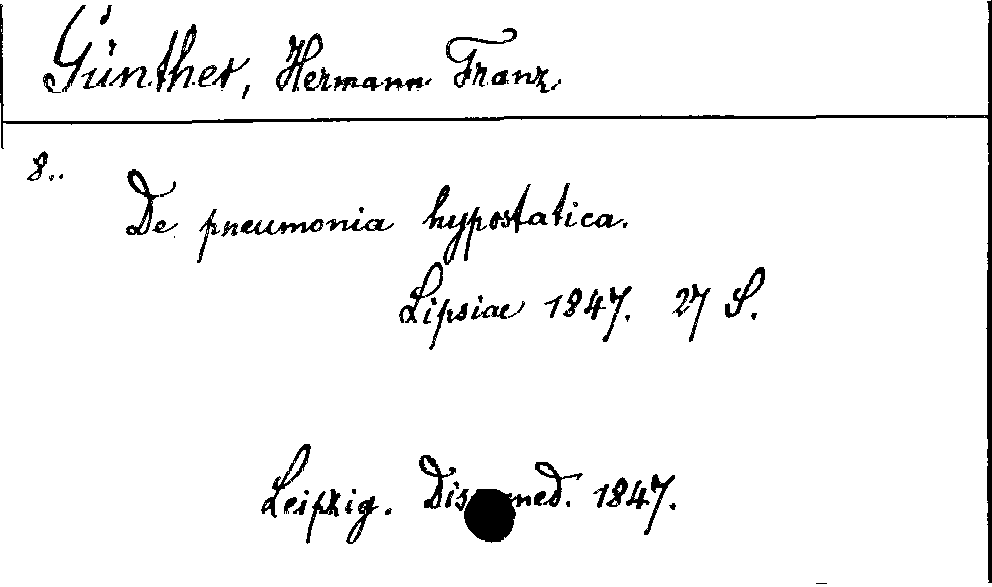 Günther, Hermann Franz.
8..
De pneumonia hypostatica.
Lipsiae 1847. 27 S.
Leipzig. Diss. med. 1847.